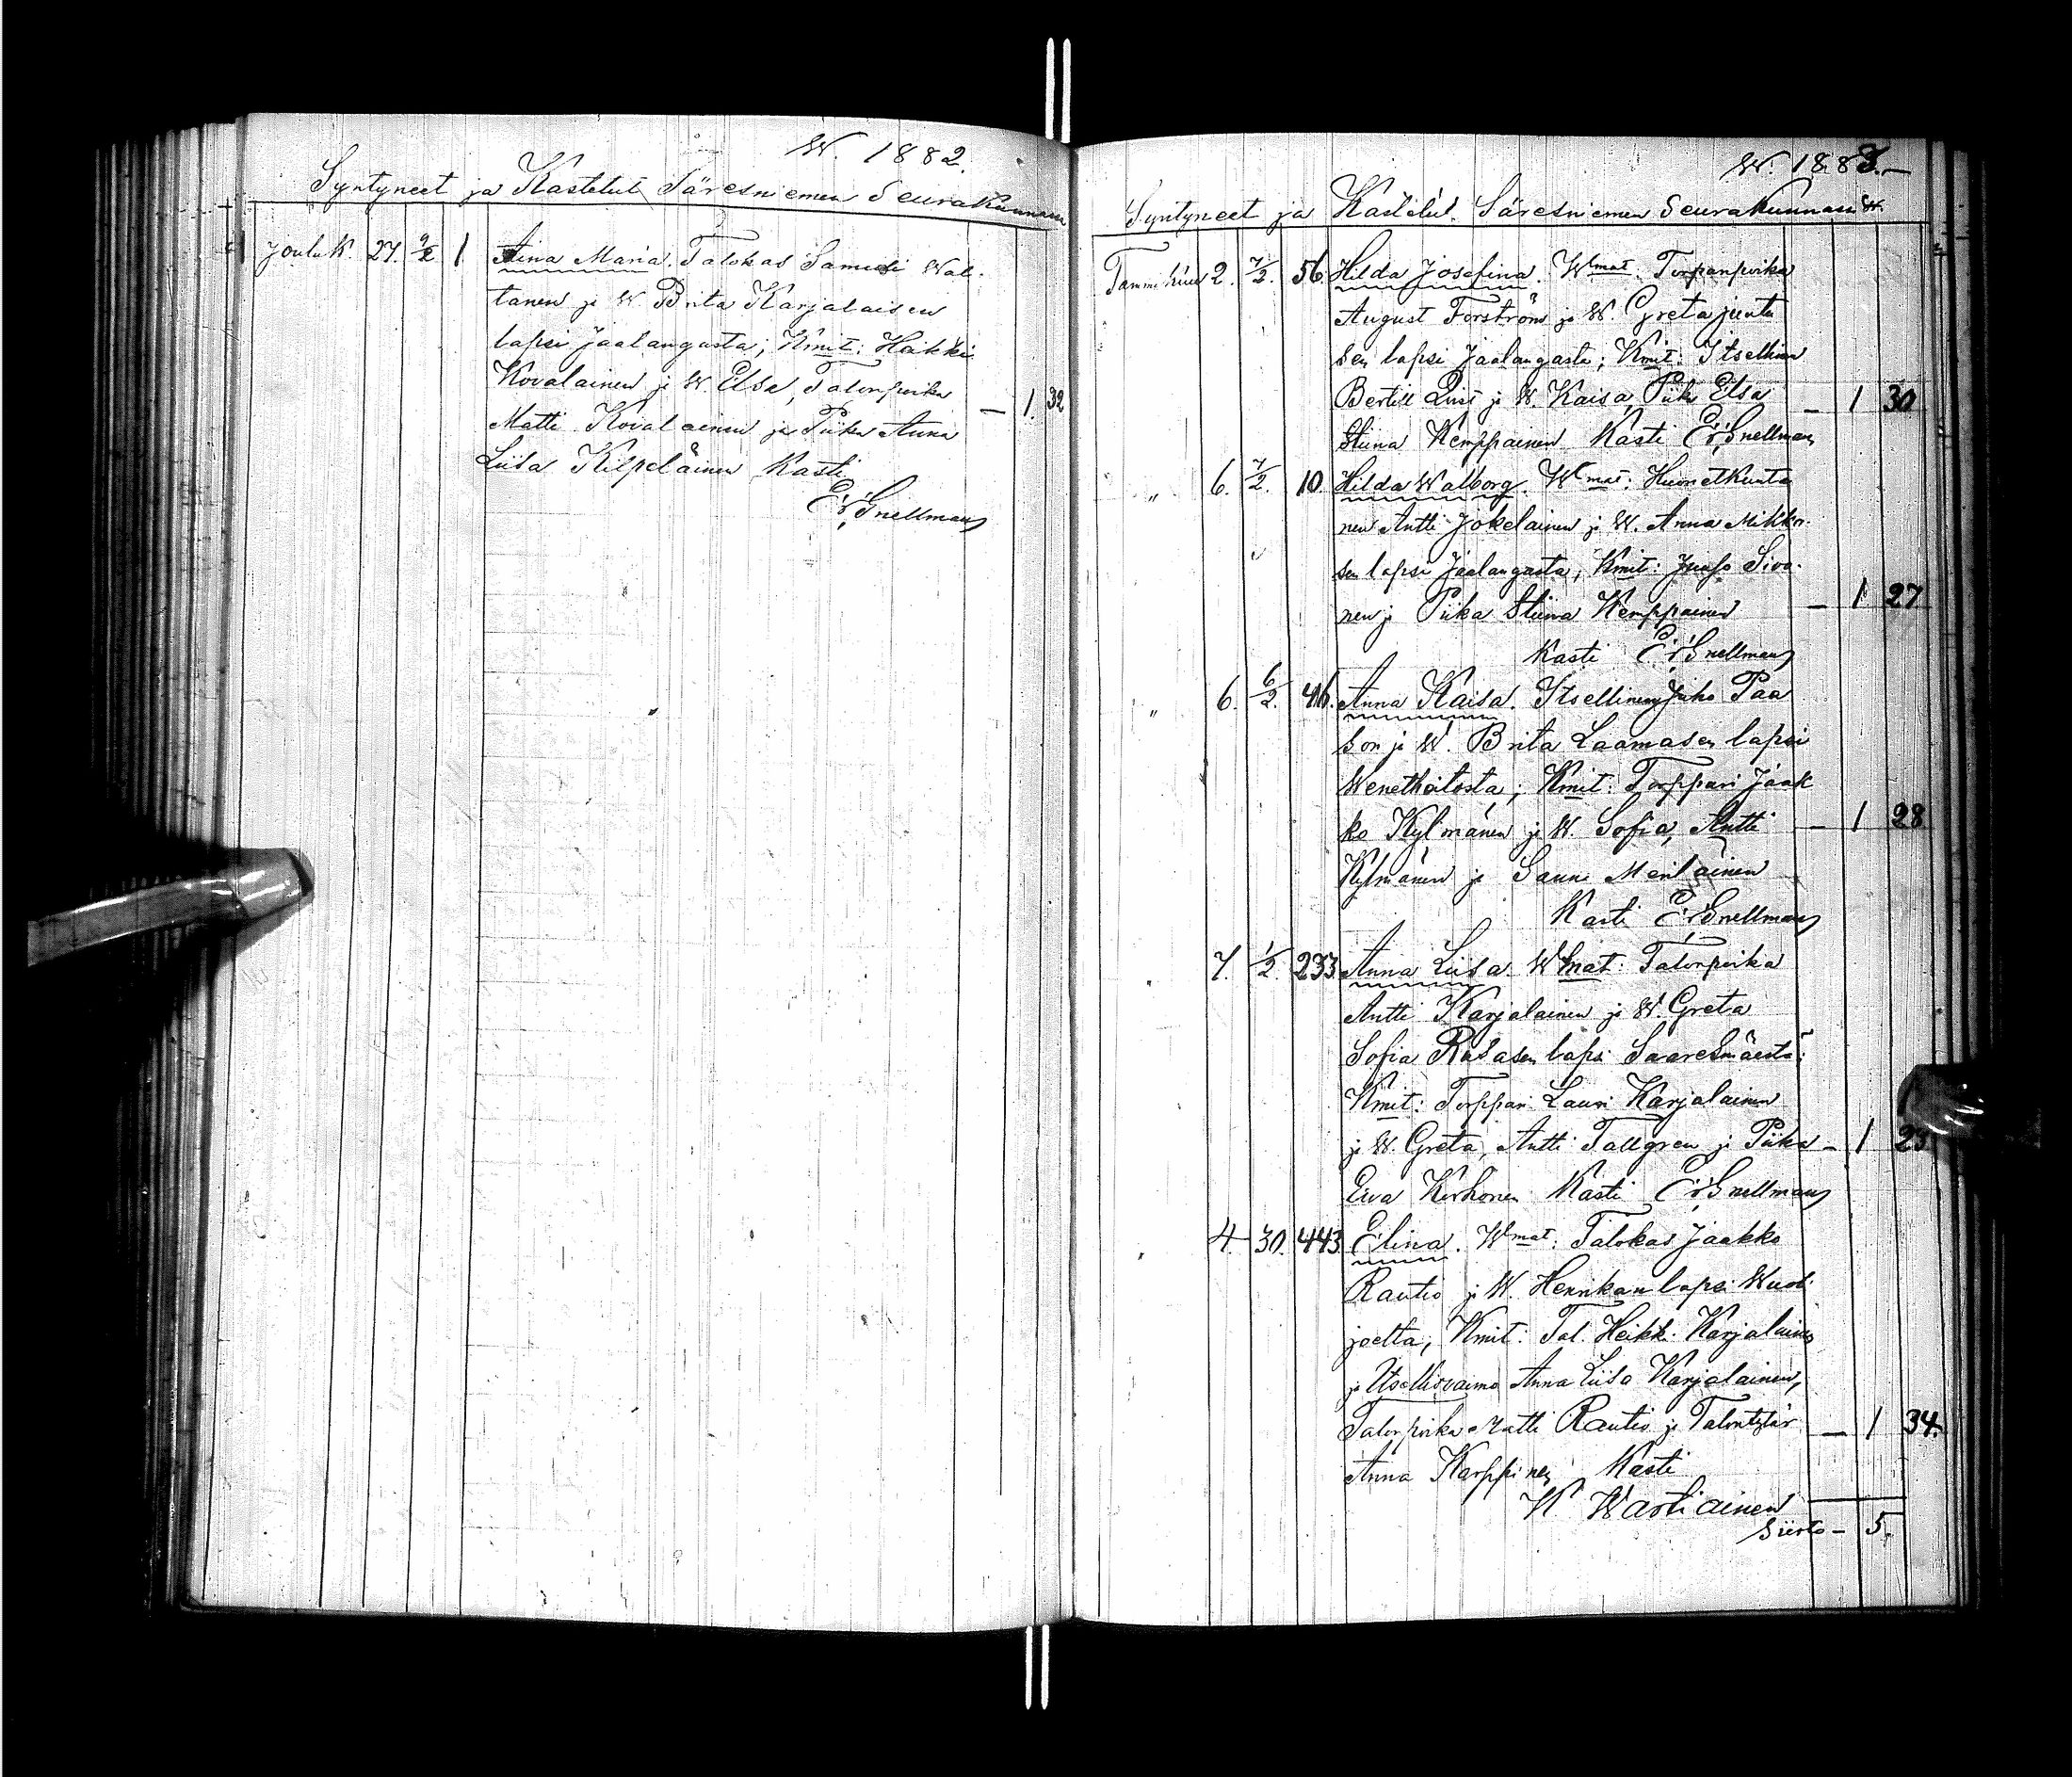 W. 1882.
Syntyneet ja Kastetut Säresniemen Seurakunnassa
JouluK. 27. 9/2 1 Aina Maria. Talokas Samuli Wal-
tanen ja W. Brita Karjalaisen
lapsi Jaalangasta; Kmit: Heikki
Kovalainen ja W. Elsa, Talonpoika
Matti Kovalainen ja Piika Anna — 1. 32
Liisa Kilpeläinen Kasti
Er. Snellman
W. 1883.—
Syntyneet ja Kastetut Säresniemen Seurakunnassa
Tammikuu 2. 7/2. 56. Hilda Josefina. Wmat. Torpanpoika
August Forström ja W. Greta Juntu
sen lapsi Jaalangasta; Kmit: Itsellinen
Bertill ja W. Kaisa, Piika Elsa — 1 30
Stiina Kemppainen Kasti Er. Snellman
„ 6. 7/2. 10. Hilda Walborg. Wmat: Huonetkunta
nen Antti Jokelainen ja W. Anna Mikko-
sen lapsi Jaalangasta; Kmit: Juho Sivo-
nen ja Piika Stiina Kemppainen — 1 27
Kasti Er. Snellman
„ 6. 6/2. 46. Anna Kaisa. Itsellinen Juho Paa
so ja W. Brita Laamasen lapsi
Wenetheitosta; Kmit: Torppari Jaak
ko Kylmänen ja W. Sofia, Antti — 1 28
Kylmänen ja Sanna Meriläinen
Kasti Er. Snellman
„ 7. 1/2. 233. Anna Liisa. Wmat: Talonpoika
Antti Karjalainen ja W. Greta
Sofia Rusasen lapsi Saaresmäestä;
Kmit: Torppari Lauri Karjalainen
ja W. Greta, Antti Tallgren ja Piika — 1 23
Eeva Kerkonen Kasti Er. Snellman
„ 4. 30. 443 Elina. Wmat: Talokas Jaakko
Rautio ja W. Henrikan lapsi Wuoli
joelta; Kmit: Tal. Heikk. Karjalainen
ja Itsellisvaimo Anna Liisa Karjalainen,
Talonpoika Matti Rautio ja Talontytär — 1 34.
Anna Karppinen Kasti
K. Wartiainen
Siirto — 5.